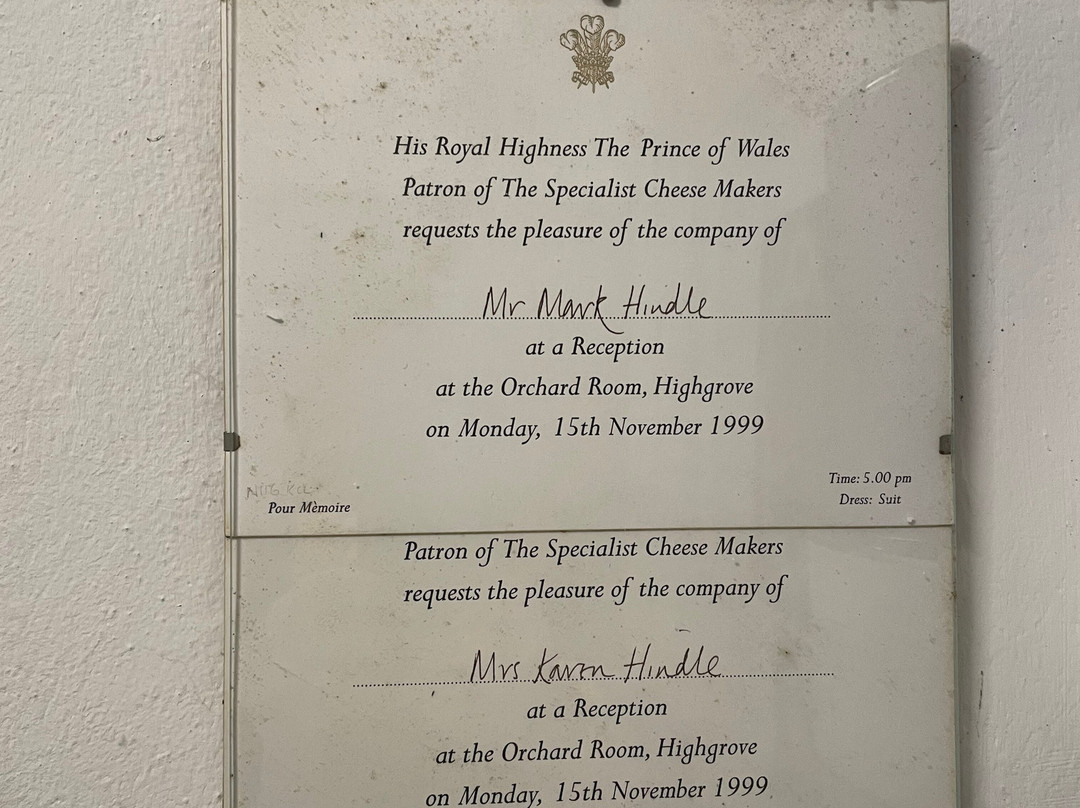 His Royal Highness The Prince of Wales
Patron of The Specialist Cheese Makers
requests the pleasure of the company of
Mr Mark Hindle
at a Reception
at the Orchard Room, Highgrove
on Monday, 15th November 1999
Time: 5.00 pm
Dress: Suit
Pour Mèmoire
Patron of The Specialist Cheese Makers
requests the pleasure of the company of
Mrs Karen Hindle
at a Reception
at the Orchard Room, Highgrove
on Monday, 15th November 1999